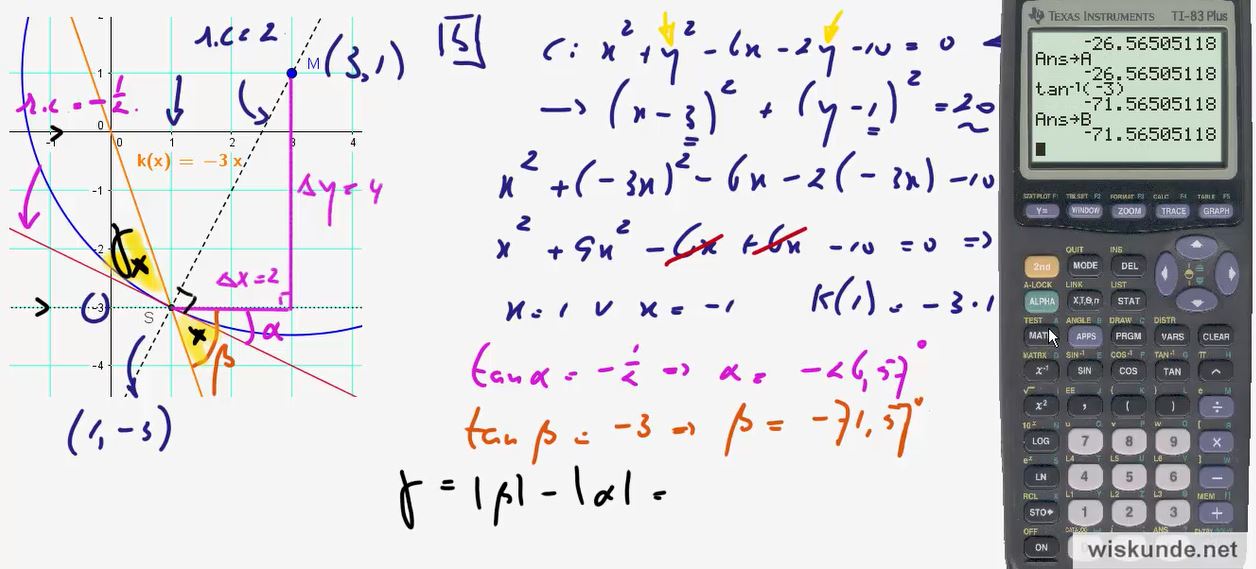 r.c = 2
M (3,1)
r.c. = -1/2.
k(x) = -3x
Δy = 4
Δx = 2
x
x
α
β
S
(1,-3)
1
0
-1
-2
-3
-4
-1 0 1 2 3 4
15
C: x² + y² - 6x - 2y - 10 = 0
→ (x - 3)² + (y - 1)² = 20
x² + (-3x)² - 6x - 2(-3x) - 10
x² + 9x² - 6x + 6x - 10 = 0 ⇒
x = 1 ∨ x = -1 k(1) = -3·1
tan α = -1/2 ⇒ α = -26,57°
tan β = -3 ⇒ β = -71,57°
γ = |β| - |α| =
TEXAS INSTRUMENTS TI-83 Plus
-26.56505118
Ans→A
-26.56505118
tan⁻¹(-3)
-71.56505118
Ans→B
-71.56505118
STAT PLOT F1 TBLSET F2 FORMAT F3 CALC F4 TABLE F5
Y= WINDOW ZOOM TRACE GRAPH
QUIT INS
2nd MODE DEL
A-LOCK LINK LIST
ALPHA X,T,θ,n STAT
TEST A ANGLE B DRAW C DISTR
MATH APPS PRGM VARS CLEAR
MATRX D SIN⁻¹ E COS⁻¹ F TAN⁻¹ G π H
x⁻¹ SIN COS TAN ^
x² , ( ) ÷
LOG 7 8 9 ×
LN 4 5 6 −
RCL
STO▸ 1 2 3 +
OFF
ON
wiskunde.net